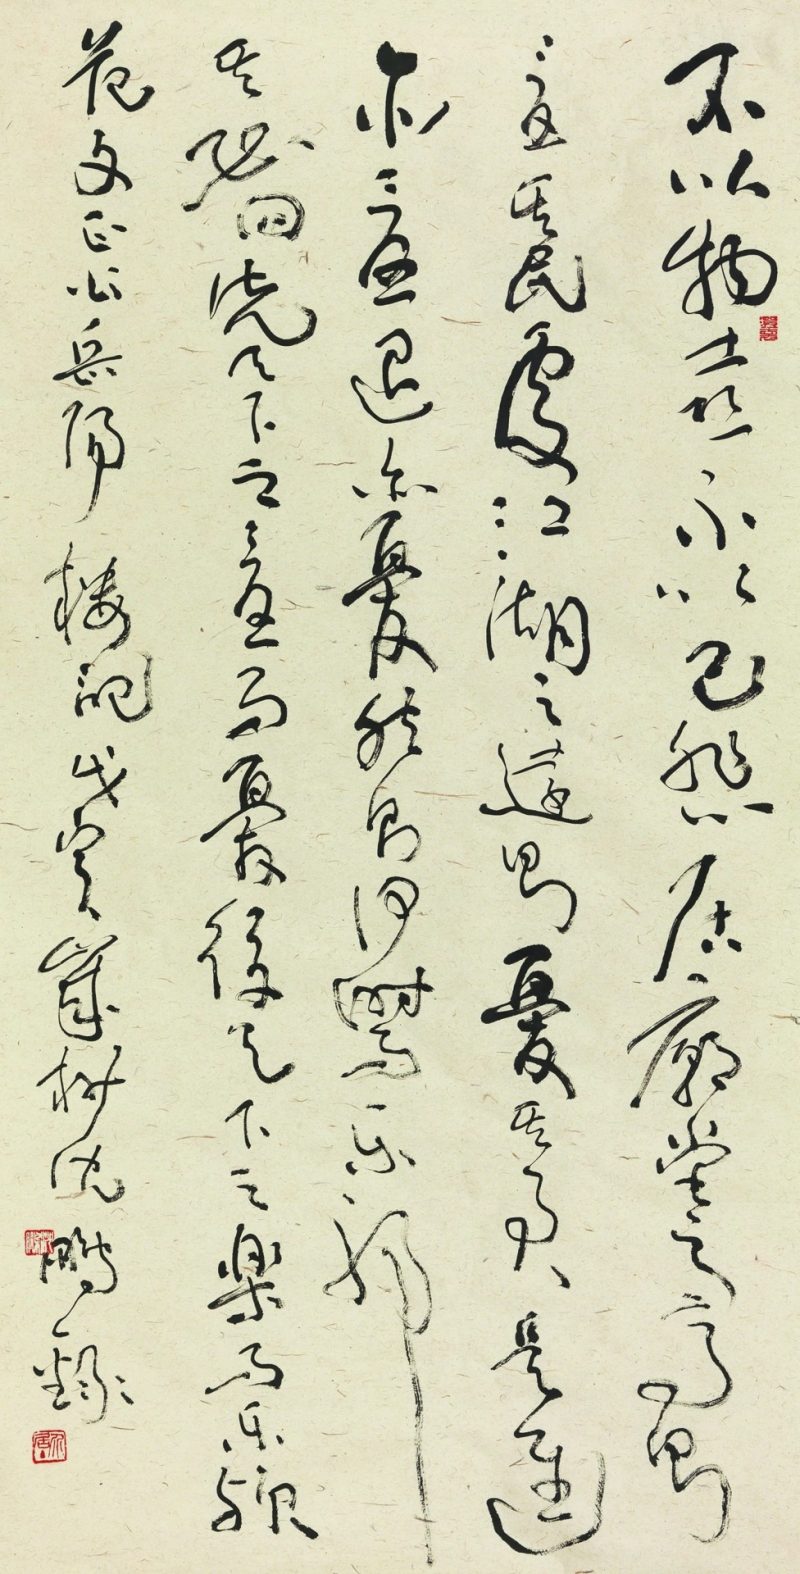 不以物喜不以己悲居廟堂之高則
憂其民處江湖之遠則憂其君是進
亦憂退亦憂然則何時而樂耶
其必曰先天下之憂而憂後天下之樂而樂歟
范文正公岳陽樓記戊寅歲杪沈鵬錄